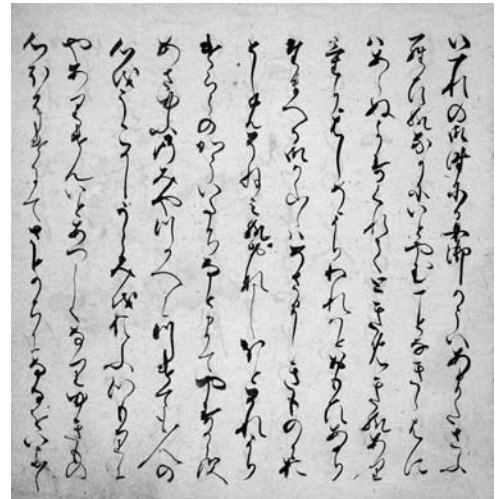 いつれの御時にか女御かういあまたさふ
らひ給なかにいとやむことなきゝはに
はあらぬかすくれてときめき給あり
けりはしめよりわれはとおもひあか
り給へる御かた〱はめさましきものにお
としめそねみ給おなしほとそれより
下らうのかういたちはましてやすからす
あさゆふのみやつかへにつけても人の
心をうこかしうらみをおふつもりに
やありけんいとあつしくなりゆきもの
心ほそけにさとかちなるをいよ〱